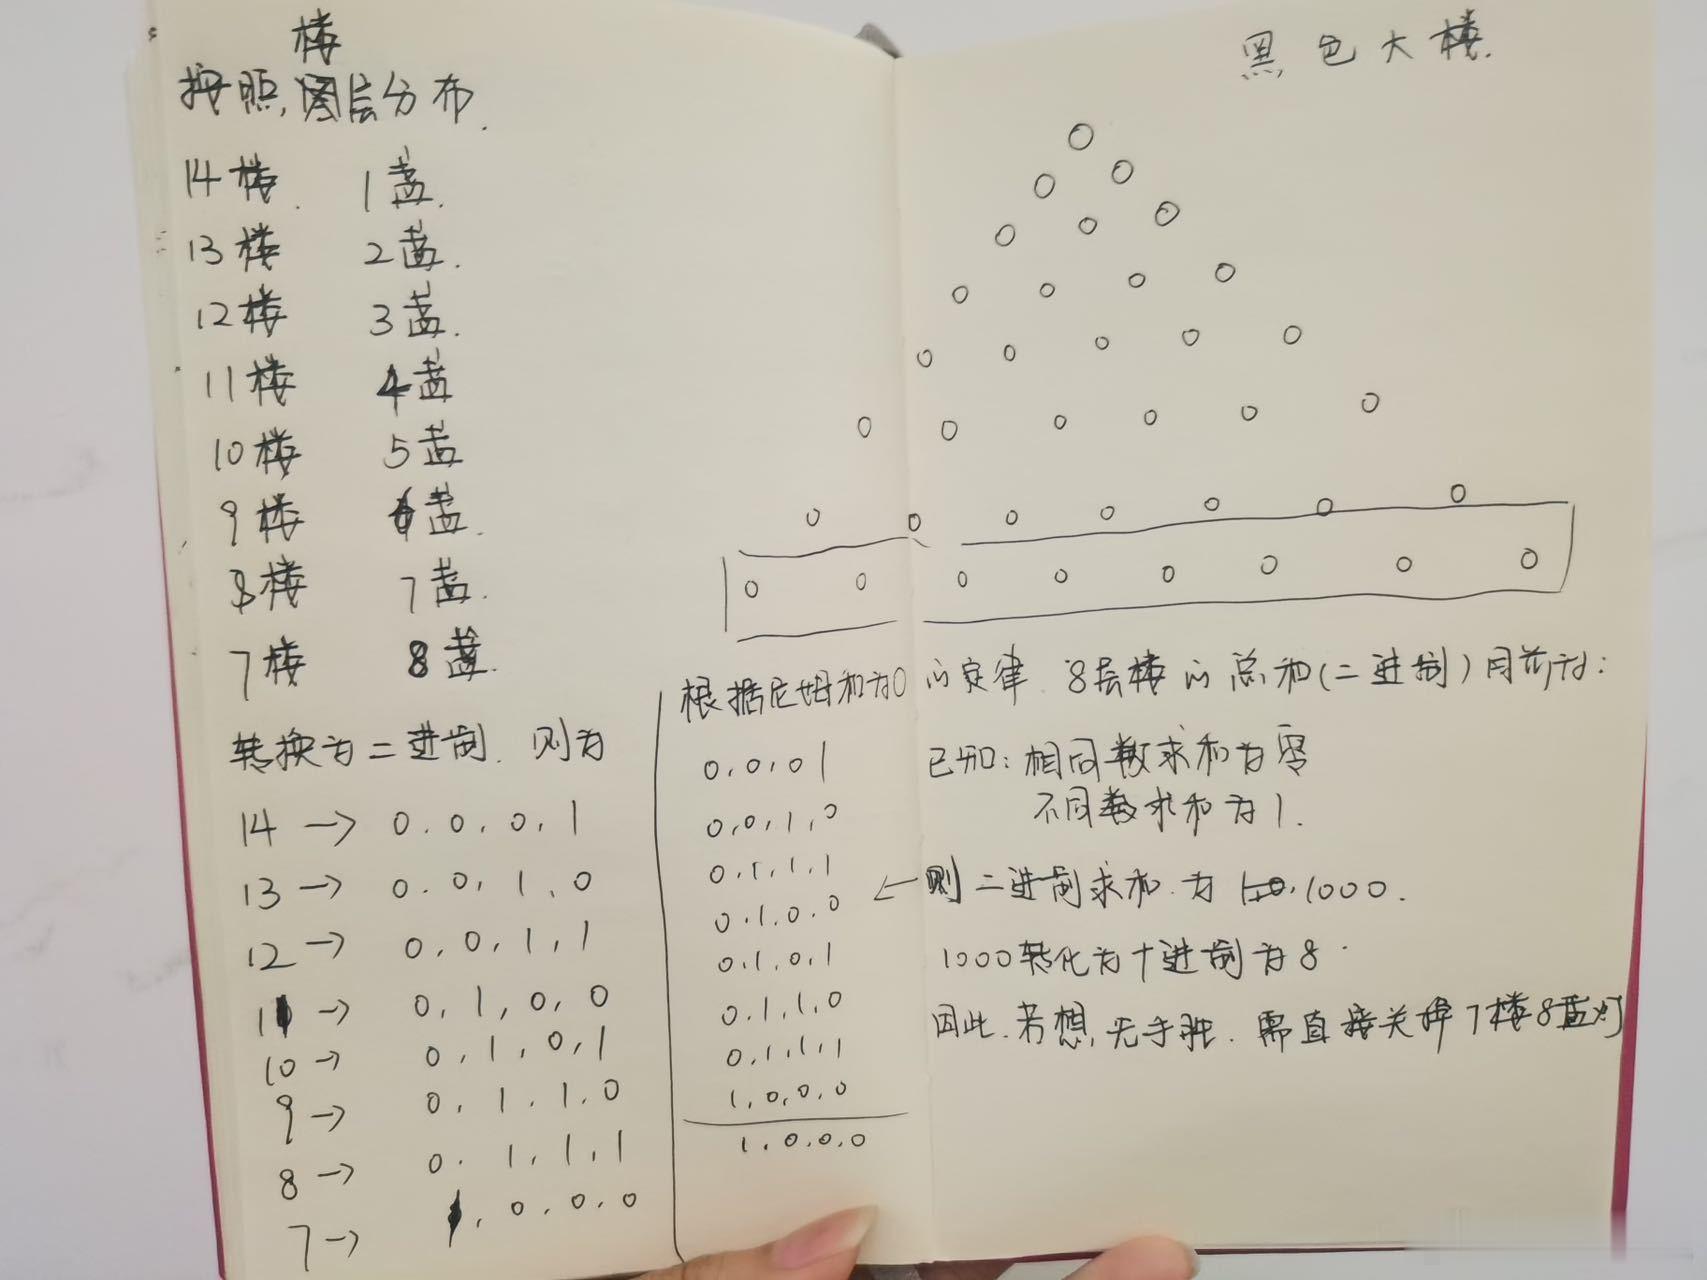 楼
按照,图层分布.
14楼. 1盏.
13楼 2盏.
12楼 3盏.
11楼 4盏
10楼 5盏
9楼 6盏.
8楼 7盏.
7楼 8盏.
转换为二进制.则为
14→ 0.0,0,1
13→ 0.0,1,0
12→ 0,0,1,1
11→ 0,1,0,0
10→ 0,1,0,1
9→ 0,1,1,0
8→ 0.1,1,1
7→ 1,0,0,0
黑色大楼.
根据尼姆和为0的定律.8层楼的总和(二进制)目前为:
0.0.01
0,0,1,0
0.1.1.1
0.1.0.0
0.1.0.1
0.1.1.0
0.1.1.1
1.0.0.0
1.0.0.0
已知:相同数求和为零
不同数求和为1.
←则二进制求和.为10.1000.
1000转化为十进制为8.
因此.若想,先手胜.需直接关掉7楼8盏灯